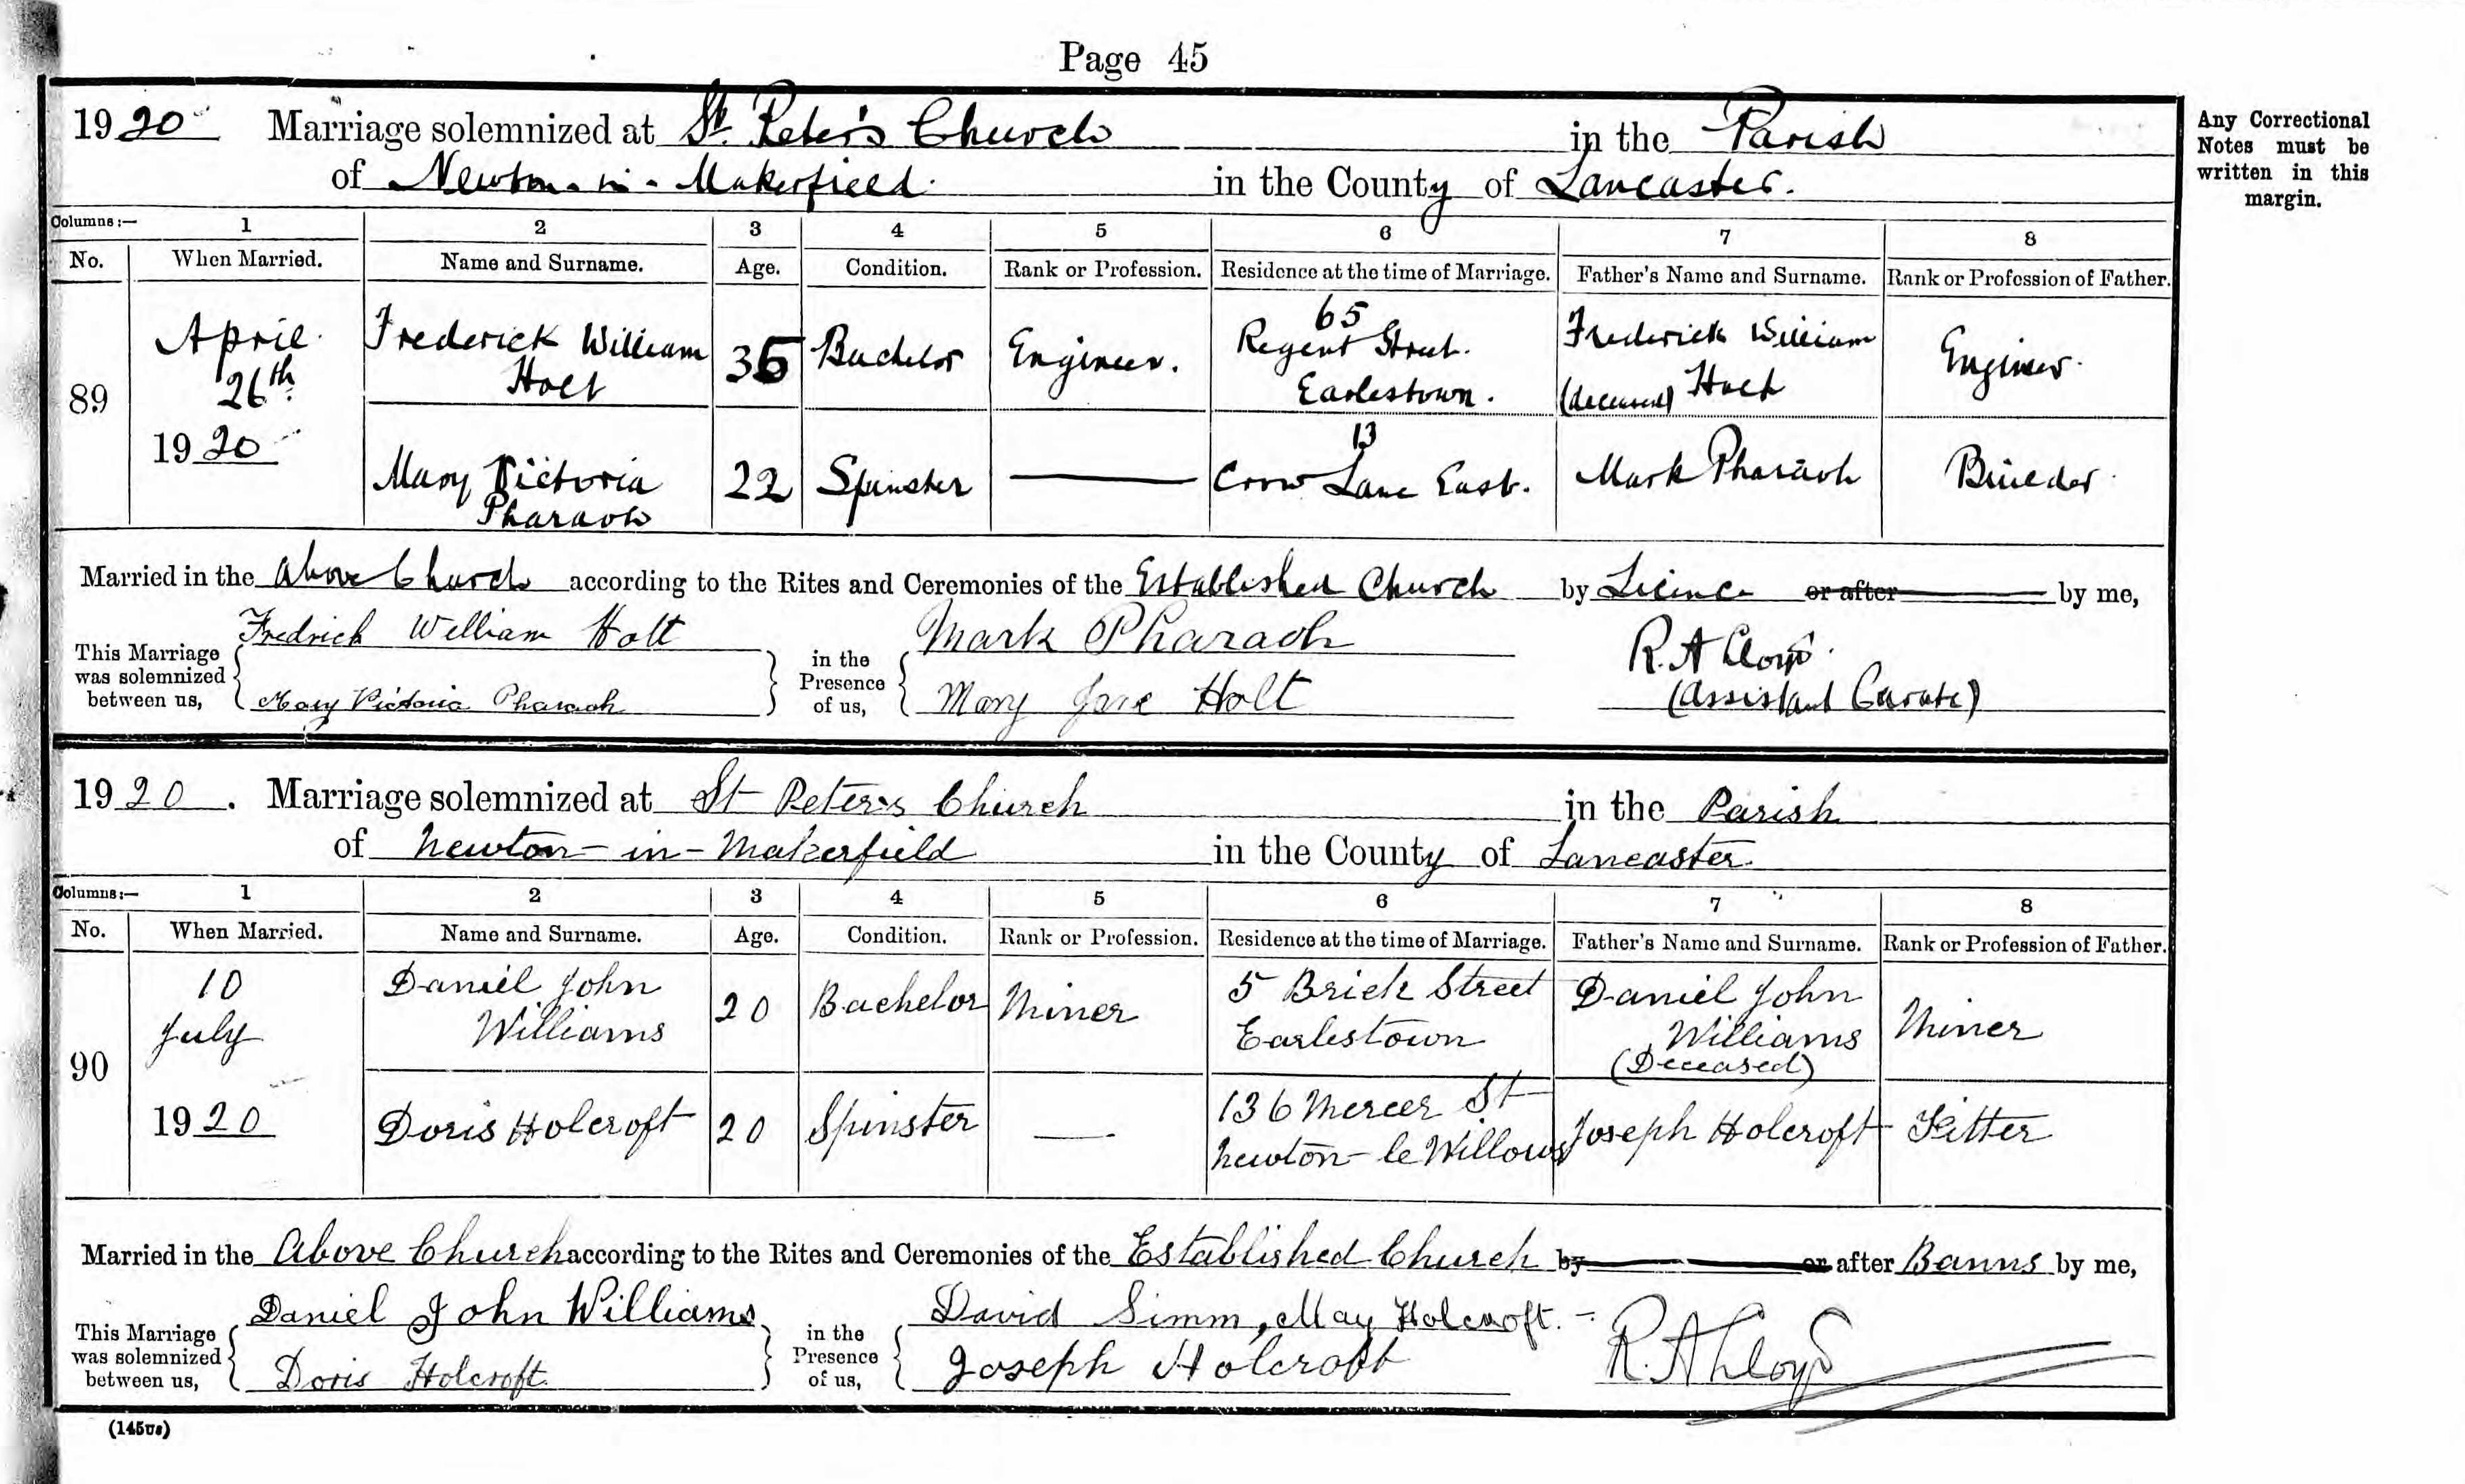 Page 45
1920 Marriage solemnized at St. Peter's Church in the Parish
of Newton-in-Makerfield in the County of Lancaster.
Any Correctional
Notes must be
written in this
margin.
Columns:— 1 2 3 4 5 6 7 8
No. When Married. Name and Surname. Age. Condition. Rank or Profession. Residence at the time of Marriage. Father's Name and Surname. Rank or Profession of Father.
89
April
26th
1920
Frederick William
Holt
35
Bachelor
Engineer.
65
Regent Street.
Earlestown.
Frederick William
(deceased) Holt
Engineer.
Mary Victoria
Pharaoh
22
Spinster
—
13
Crow Lane East.
Mark Pharaoh
Builder
Married in the above Church according to the Rites and Ceremonies of the Established Church by Licence or after by me,
This Marriage
was solemnized
between us,
Fredrick William Holt
Mary Victoria Pharaoh
in the
Presence
of us,
Mark Pharaoh
Mary Jane Holt
R. A Lloyd.
(Assistant Curate)
1920. Marriage solemnized at St Peter's Church in the Parish
of Newton-in-Makerfield in the County of Lancaster.
Columns:— 1 2 3 4 5 6 7 8
No. When Married. Name and Surname. Age. Condition. Rank or Profession. Residence at the time of Marriage. Father's Name and Surname. Rank or Profession of Father.
90
10
July
1920
Daniel John
Williams
20
Bachelor
Miner
5 Brick Street
Earlestown
Daniel John
Williams
(Deceased)
Miner
Doris Holcroft
20
Spinster
—
136 Mercer St
Newton-le Willows
Joseph Holcroft
Fitter
Married in the Above Church according to the Rites and Ceremonies of the Established Church by or after Banns by me,
This Marriage
was solemnized
between us,
Daniel John Williams
Doris Holcroft
in the
Presence
of us,
David Simm, May Holcroft.-
Joseph Holcroft
R. A Lloyd
(145US)